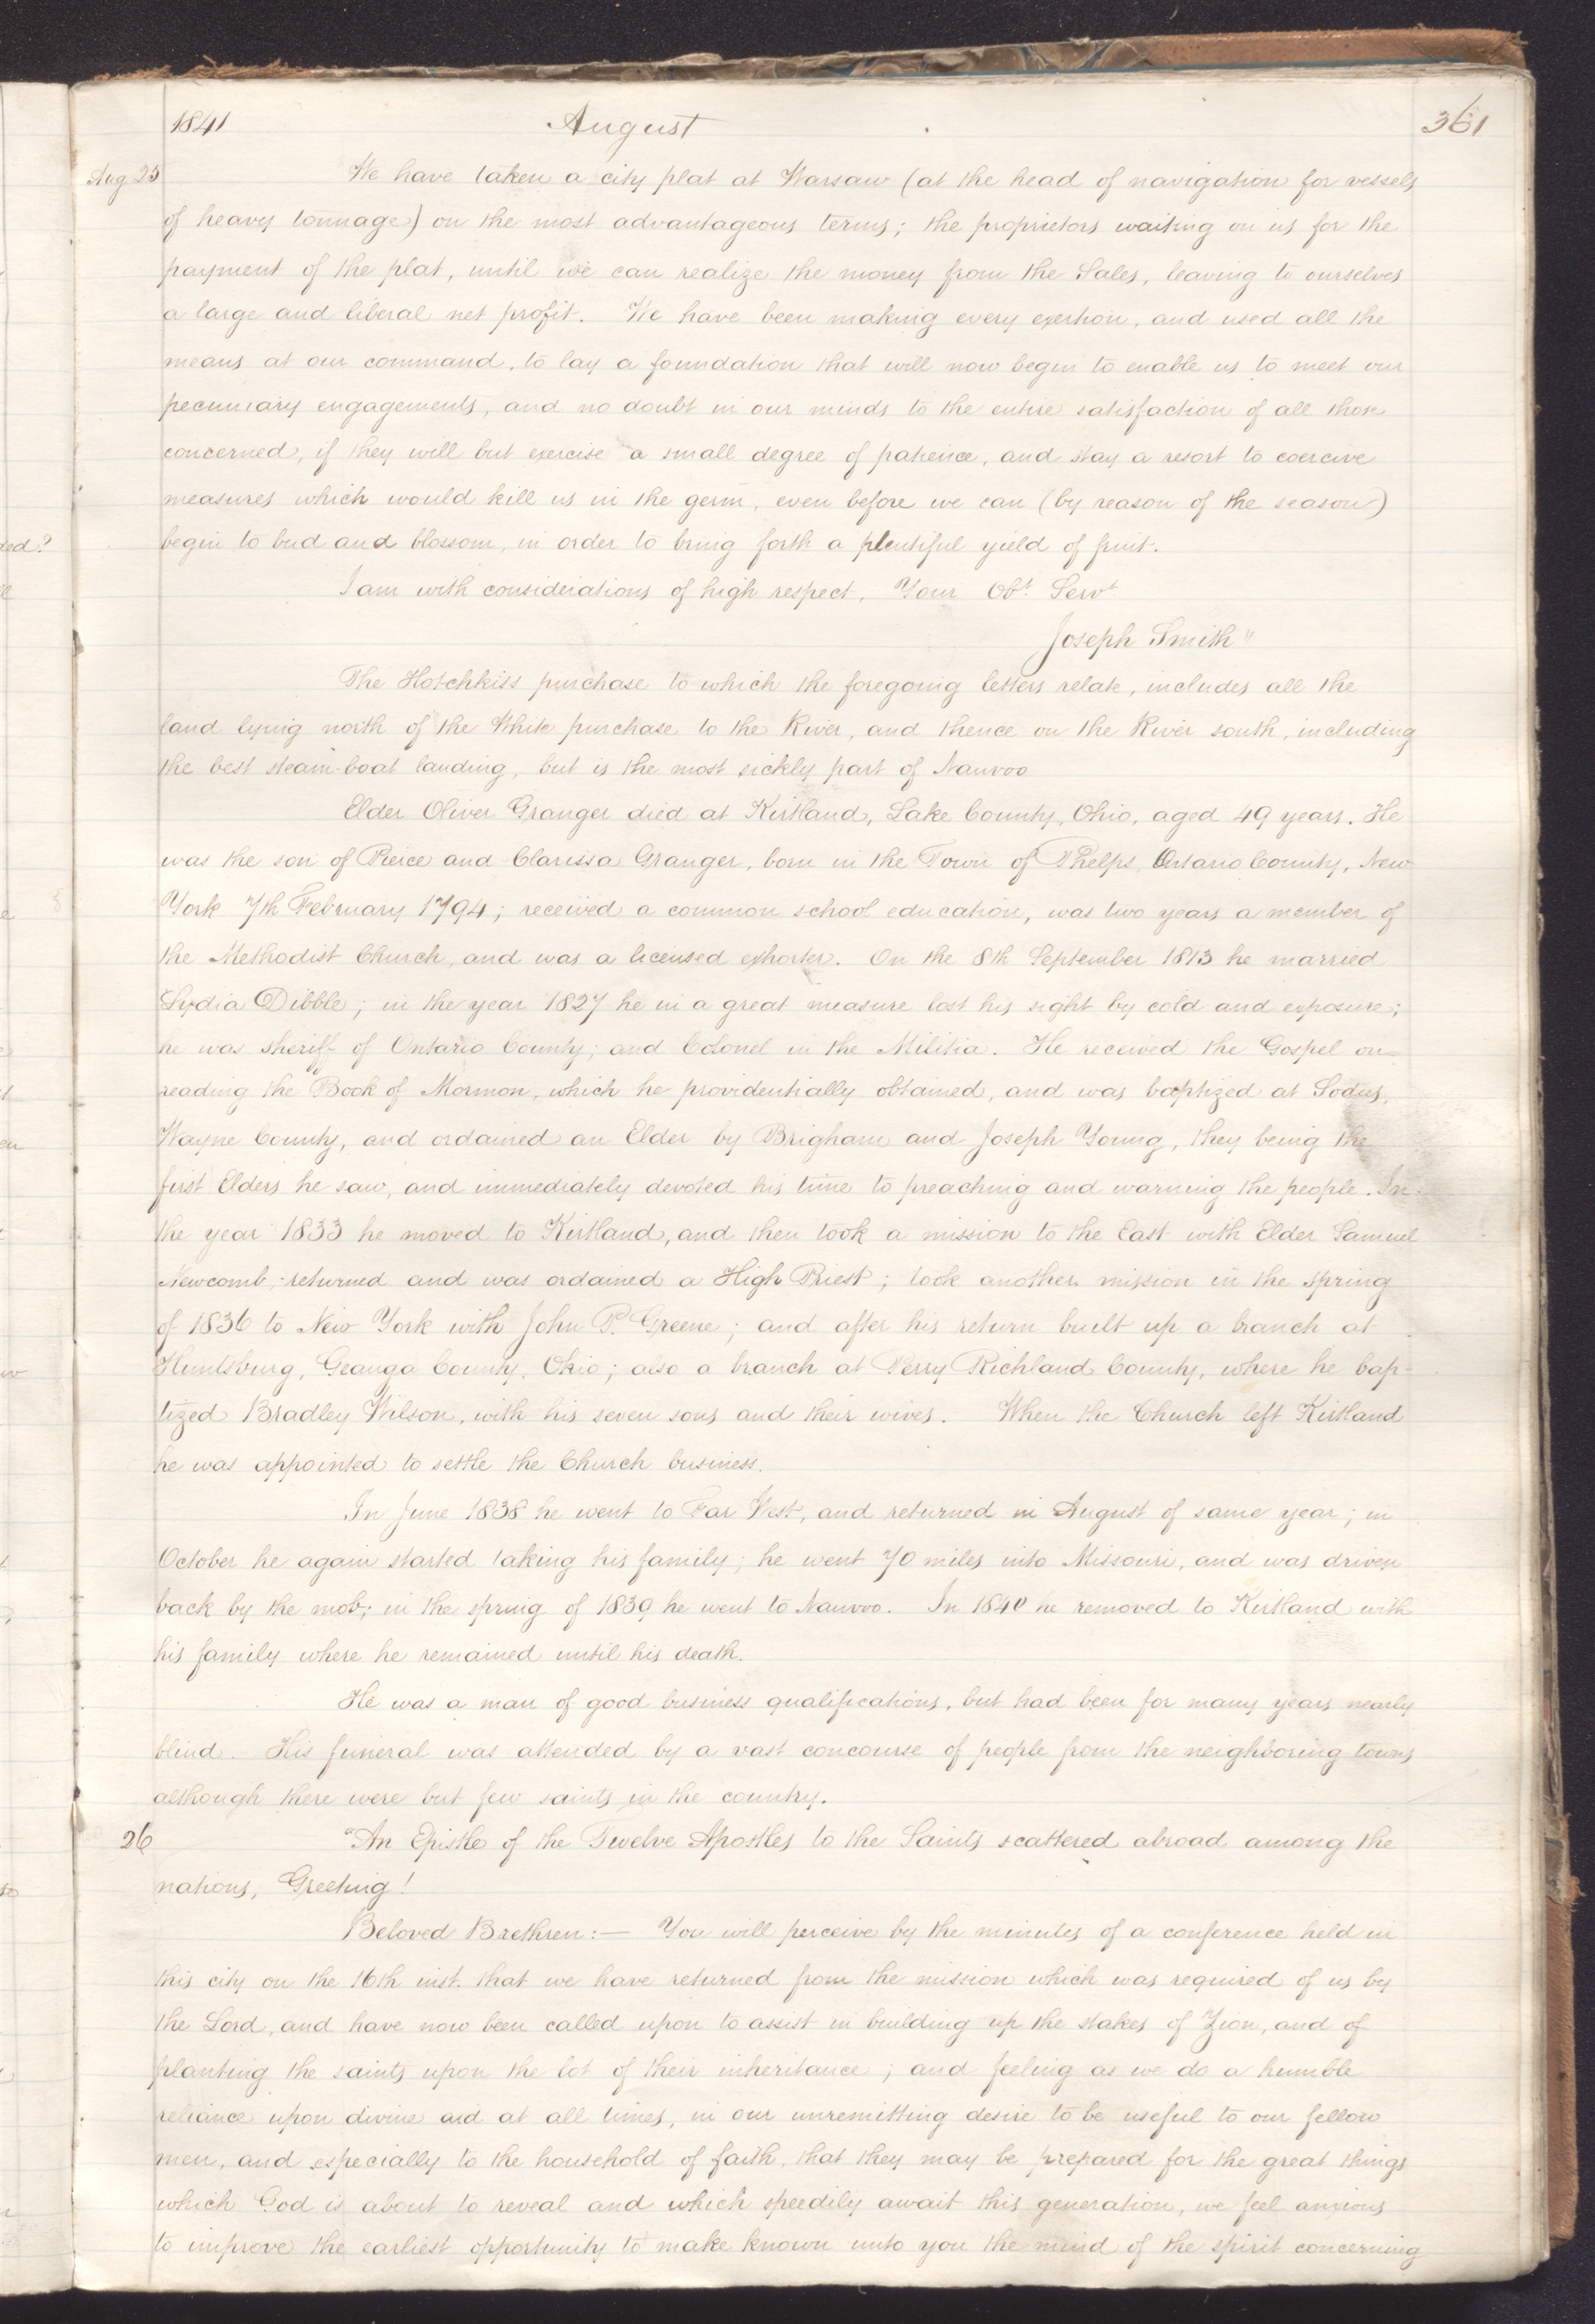 1841 August 361
Aug 25 We have taken a city plat at Warsaw (at the head of navigation for vessels
of heavy tonnage) on the most advantageous terms; the proprietors waiting on us for the
payment of the plat, until we can realize the money from the Sales, leaving to ourselves
a large and liberal net profit. We have been making every exertion, and used all the
means at our command, to lay a foundation that will now begin to enable us to meet our
pecuniary engagements, and no doubt in our minds to the entire satisfaction of all those
concerned, if they will but exercise a small degree of patience, and stay a resort to coercive
measures which would kill us in the germ, even before we can (by reason of the season)
begin to bud and blossom, in order to bring forth a plentiful yield of fruit.
I am with considerations of high respect, Your Obt. Servt
Joseph Smith"
The Hotchkiss purchase to which the foregoing letters relate, includes all the
land lying north of the White purchase to the River, and thence on the River south, including
the best steam-boat landing, but is the most sickly part of Nauvoo
Elder Oliver Granger died at Kirtland, Lake County, Ohio, aged 49 years. He
was the son of Pierce and Clarissa Granger, born in the Town of Phelps, Ontario County, New
York 7th February 1794; received a common school education, was two years a member of
the Methodist Church, and was a licensed exhorter. On the 8th September 1813 he married
Lydia Dibble; in the year 1827 he in a great measure lost his sight by cold and exposure;
he was sheriff of Ontario County; and Colonel in the Militia. He received the Gospel on
reading the Book of Mormon, which he providentially obtained, and was baptized at Sodus,
Wayne County, and ordained an Elder by Brigham and Joseph Young, they being the
first Elders he saw, and immediately devoted his time to preaching and warning the people. In
the year 1833 he moved to Kirtland, and then took a mission to the East with Elder Samuel
Newcomb; returned and was ordained a High Priest; took another mission in the spring
of 1836 to New York with John P. Greene; and after his return built up a branch at
Huntsburg, Geauga County, Ohio; also a branch at Perry Richland County, where he bap-
tized Bradley Wilson, with his seven sons and their wives. When the Church left Kirtland
he was appointed to settle the Church business.
In June 1838 he went to Far West, and returned in August of same year; in
October he again started taking his family; he went 70 miles into Missouri, and was driven
back by the mob; in the spring of 1839 he went to Nauvoo. In 1840 he removed to Kirtland with
his family where he remained until his death.
He was a man of good business qualifications, but had been for many years nearly
blind. His funeral was attended by a vast concourse of people from the neighboring towns
although there were but few saints in the country.
26 "An Epistle of the Twelve Apostles to the Saints scattered abroad among the
nations, Greeting!
Beloved Brethren:— You will perceive by the minutes of a conference held in
this city on the 16th inst. that we have returned from the mission which was required of us by
the Lord, and have now been called upon to assist in building up the stakes of Zion, and of
planting the saints upon the lot of their inheritance; and feeling as we do a humble
reliance upon divine aid at all times, in our unremitting desire to be useful to our fellow
men, and especially to the household of faith, that they may be prepared for the great things
which God is about to reveal and which speedily await this generation, we feel anxious
to improve the earliest opportunity to make known unto you the mind of the spirit concerning